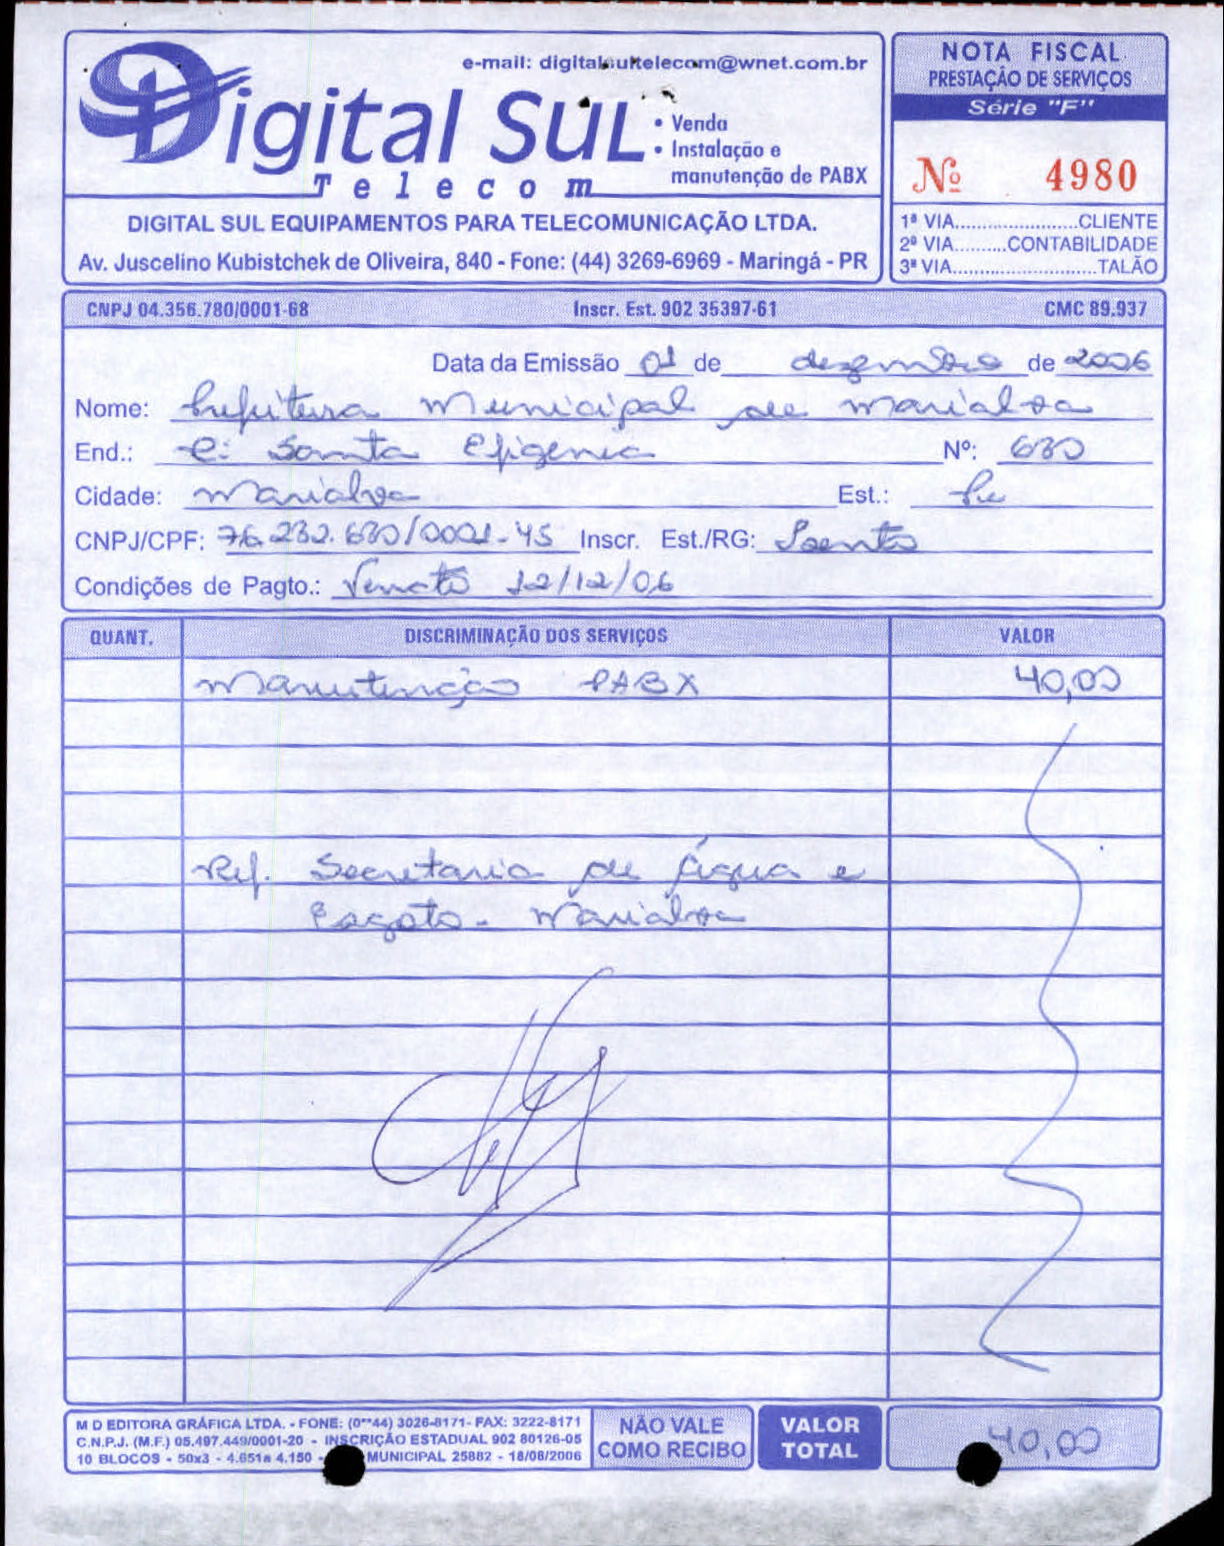 e-mail: digitalsultelecom@wnet.com.br
Digital Sul
Telecom
• Venda
• Instalação e
manutenção de PABX
DIGITAL SUL EQUIPAMENTOS PARA TELECOMUNICAÇÃO LTDA.
Av. Juscelino Kubistchek de Oliveira, 840 - Fone: (44) 3269-6969 - Maringá - PR
NOTA FISCAL
PRESTAÇÃO DE SERVIÇOS
Série "F"
Nº 4980
1ª VIA......................CLIENTE
2ª VIA.........CONTABILIDADE
3ª VIA..........................TALÃO
CNPJ 04.356.780/0001-68 Inscr. Est. 902 35397-61 CMC 89.937
Data da Emissão 01 de dezembro de 2006
Nome: Prefeitura Municipal de Marialva
End.: R: Santa Efigenia Nº: 680
Cidade: Marialva Est.: Pr
CNPJ/CPF: 76.282.680/0001-45 Inscr. Est./RG: Isento
Condições de Pagto.: Vencto 12/12/06
QUANT. DISCRIMINAÇÃO DOS SERVIÇOS VALOR
Manutenção PABX 40,00
Ref. Secretaria de Água e
Esgoto - Marialva
M D EDITORA GRÁFICA LTDA. - FONE: (0**44) 3026-8171- FAX: 3222-8171
C.N.P.J. (M.F.) 05.497.449/0001-20 - INSCRIÇÃO ESTADUAL 902 80126-05
10 BLOCOS - 50x3 - 4.651a 4.150 - MUNICIPAL 25882 - 18/08/2006
NÃO VALE
COMO RECIBO
VALOR
TOTAL
40,00